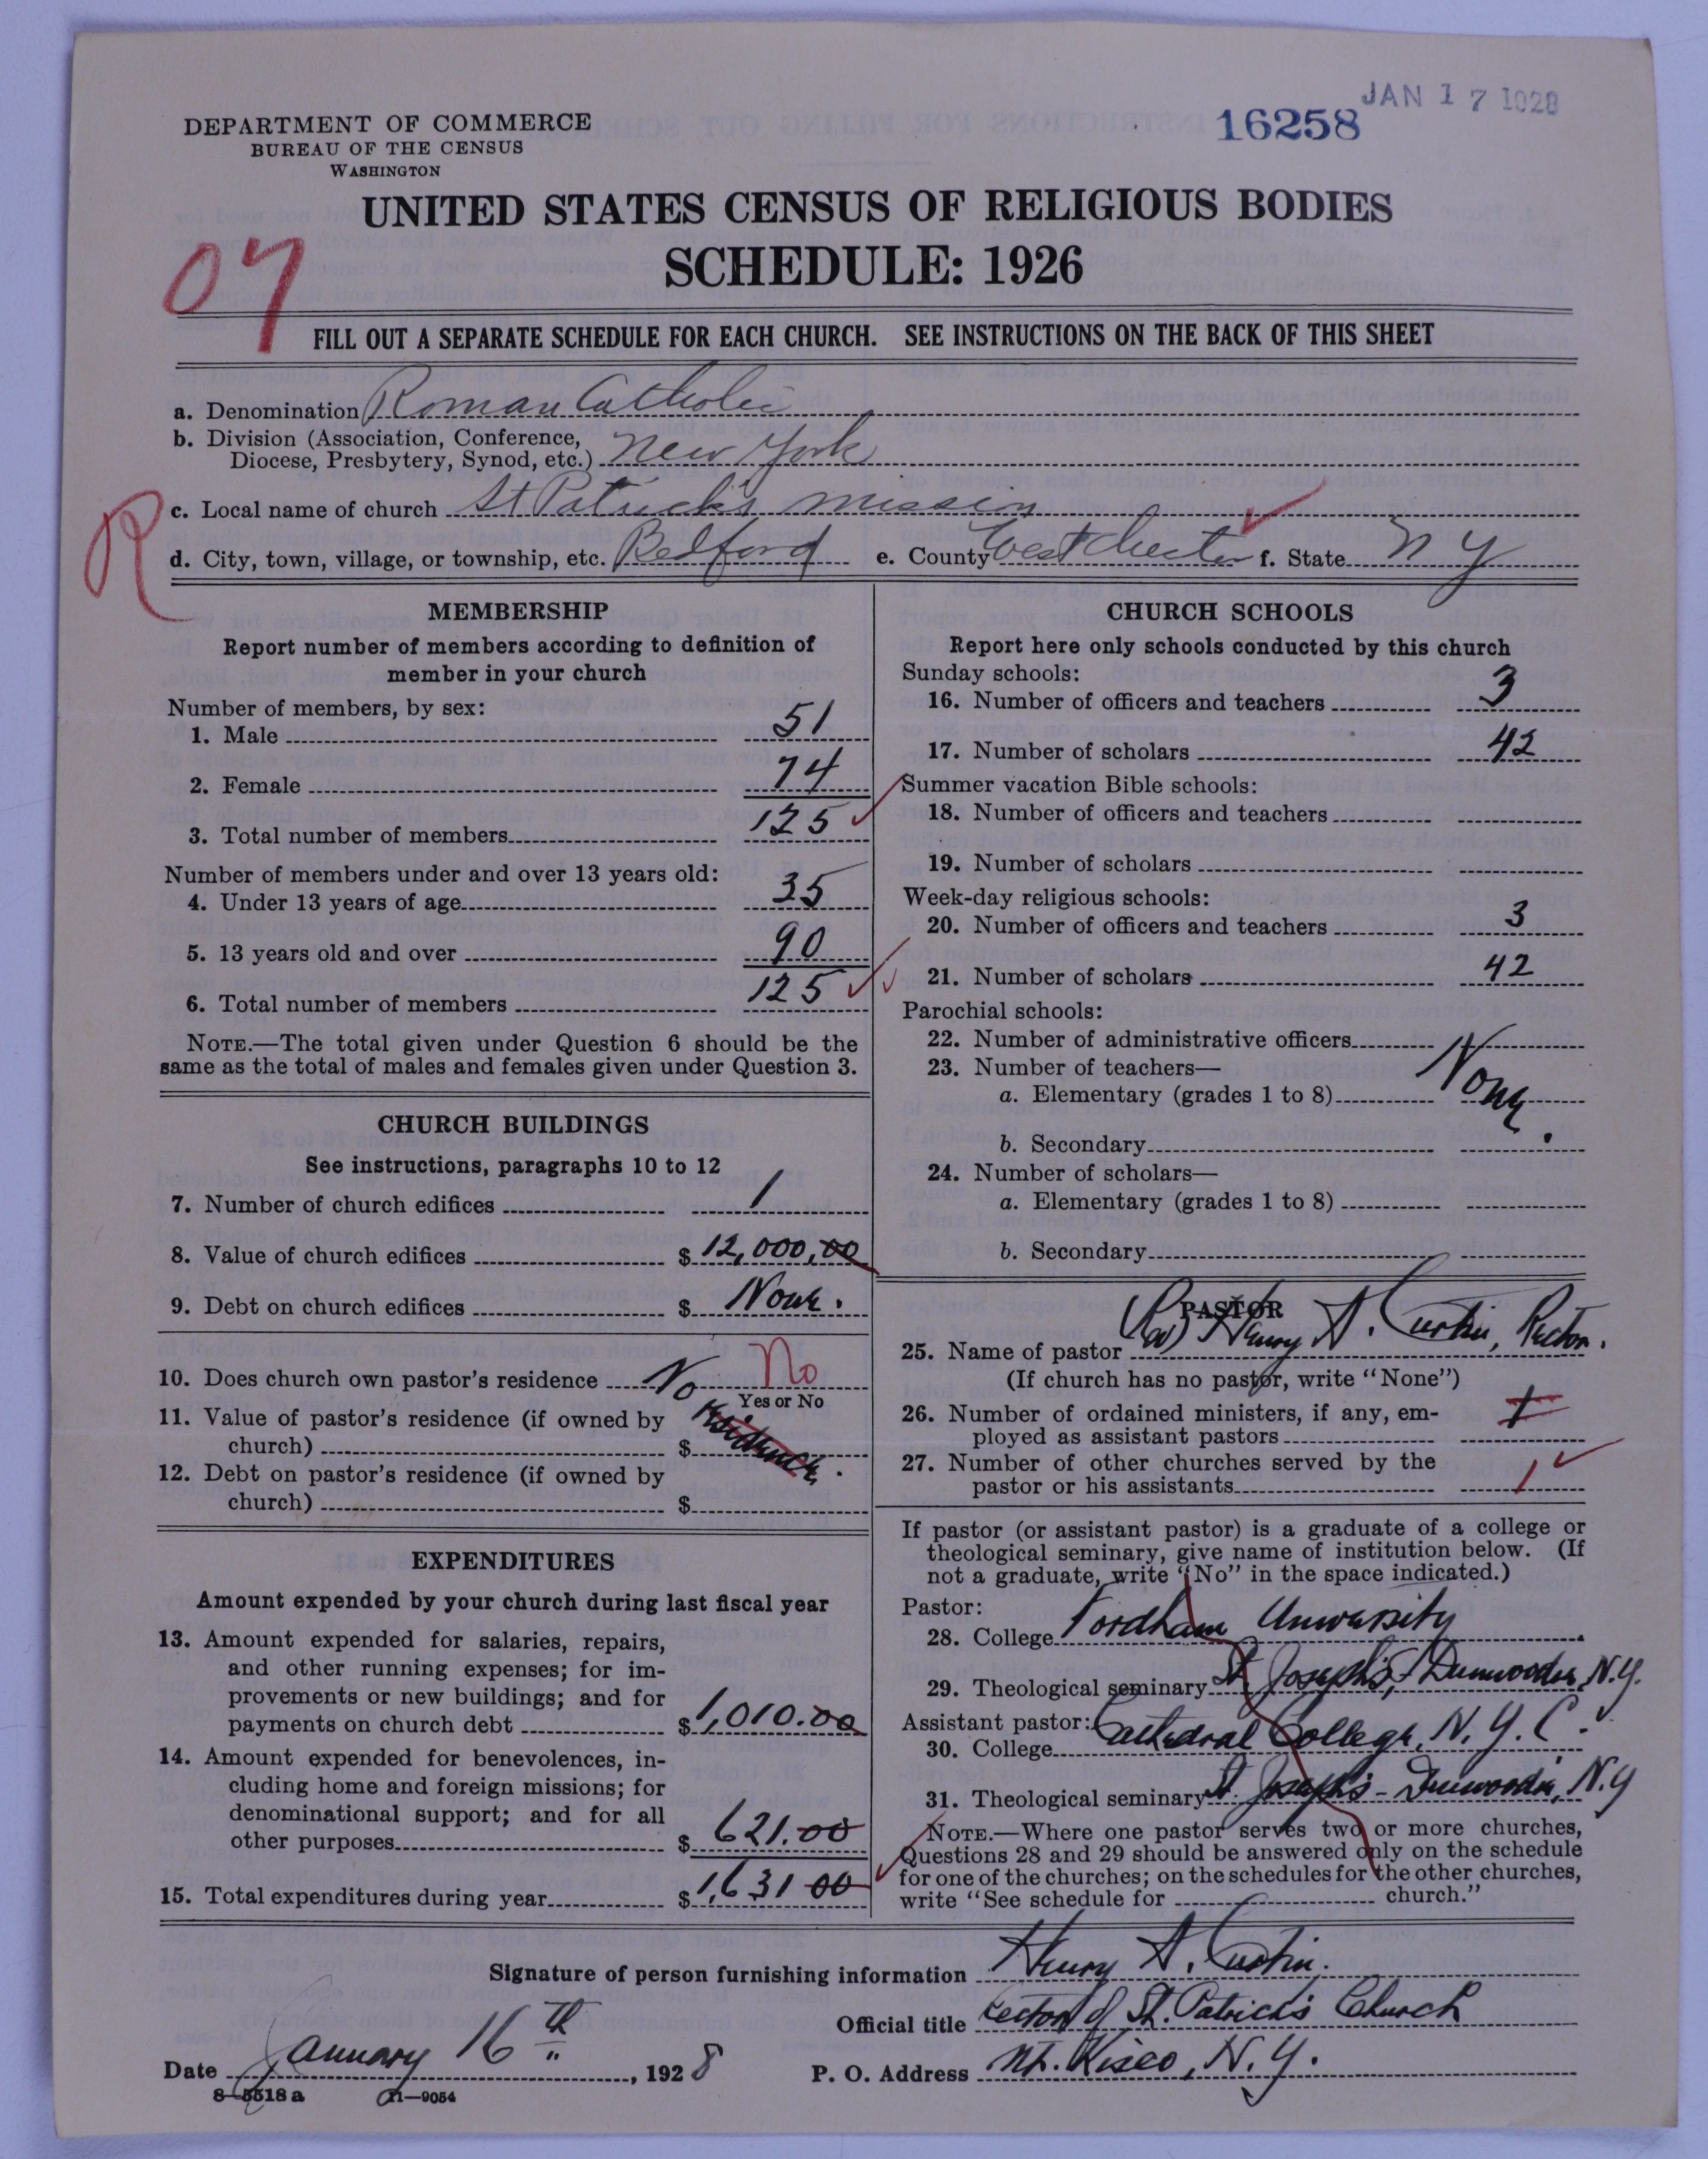 JAN 17 1928
16258
DEPARTMENT OF COMMERCE
BUREAU OF THE CENSUS
WASHINGTON
UNITED STATES CENSUS OF RELIGIOUS BODIES
SCHEDULE: 1926
07
FILL OUT A SEPARATE SCHEDULE FOR EACH CHURCH. SEE INSTRUCTIONS ON THE BACK OF THIS SHEET
a. Denomination Roman Catholic
b. Division (Association, Conference,
Diocese, Presbytery, Synod, etc.) New York
R
c. Local name of church St Patrick's mission
d. City, town, village, or township, etc. Bedford e. County Westchester f. State N Y
MEMBERSHIP
Report number of members according to definition of
member in your church
Number of members, by sex:
1. Male 51
2. Female 74
3. Total number of members 125
Number of members under and over 13 years old:
4. Under 13 years of age 35
5. 13 years old and over 90
6. Total number of members 125
NOTE.—The total given under Question 6 should be the
same as the total of males and females given under Question 3.
CHURCH BUILDINGS
See instructions, paragraphs 10 to 12
7. Number of church edifices 1
8. Value of church edifices $ 12,000,00
9. Debt on church edifices $ None.
10. Does church own pastor's residence No No
Yes or No
11. Value of pastor's residence (if owned by
church) $ Residence.
12. Debt on pastor's residence (if owned by
church) $
EXPENDITURES
Amount expended by your church during last fiscal year
13. Amount expended for salaries, repairs,
and other running expenses; for im-
provements or new buildings; and for
payments on church debt $ 1,010.00
14. Amount expended for benevolences, in-
cluding home and foreign missions; for
denominational support; and for all
other purposes $ 621.00
15. Total expenditures during year $ 1,631 00
CHURCH SCHOOLS
Report here only schools conducted by this church
Sunday schools:
16. Number of officers and teachers 3
17. Number of scholars 42
Summer vacation Bible schools:
18. Number of officers and teachers
19. Number of scholars
Week-day religious schools:
20. Number of officers and teachers 3
21. Number of scholars 42
Parochial schools:
22. Number of administrative officers
23. Number of teachers—
a. Elementary (grades 1 to 8) None.
b. Secondary
24. Number of scholars—
a. Elementary (grades 1 to 8)
b. Secondary
PASTOR
25. Name of pastor (Rev) Henry A. Curtin, Rector.
(If church has no pastor, write "None")
26. Number of ordained ministers, if any, em-
ployed as assistant pastors 1
27. Number of other churches served by the
pastor or his assistants 1
If pastor (or assistant pastor) is a graduate of a college or
theological seminary, give name of institution below. (If
not a graduate, write "No" in the space indicated.)
Pastor:
28. College Fordham University
29. Theological seminary St Joseph's, Dunwoodie, N.Y.
Assistant pastor:
30. College Cathedral College, N. Y. C.
31. Theological seminary St. Joseph's - Dunwoodie, N.Y
NOTE.—Where one pastor serves two or more churches,
Questions 28 and 29 should be answered only on the schedule
for one of the churches; on the schedules for the other churches,
write "See schedule for church."
Signature of person furnishing information Henry A. Curtin.
Official title Rector of St. Patrick's Church
Date January 16th, 1928 P. O. Address Mt. Kisco, N.Y.
8—5518a 11—9054